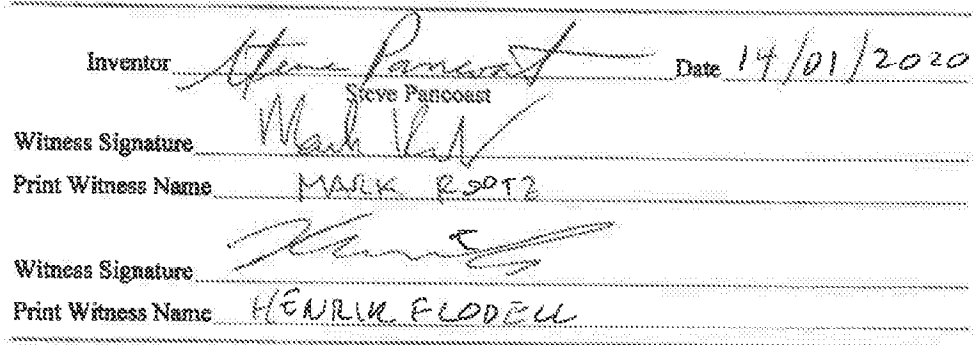 Inventor Steve Pancoast Date 14/01/2020
Steve Pancoast
Witness Signature
Print Witness Name MARK ROOTZ
Witness Signature
Print Witness Name HENRIK FLODELL